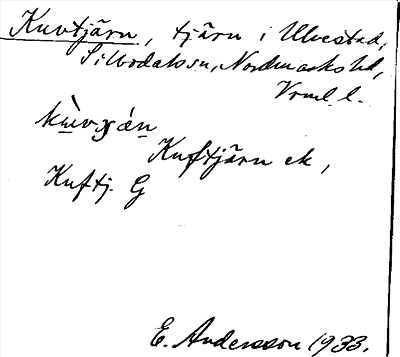 Kuvtjärn, tjärn i Ulvestad,
Silbodals sn, Nordmarks hd,
Vrml. l.
kùvχán
Kuftjärn ek,
Kuftj. G
E. Andersson 1933.